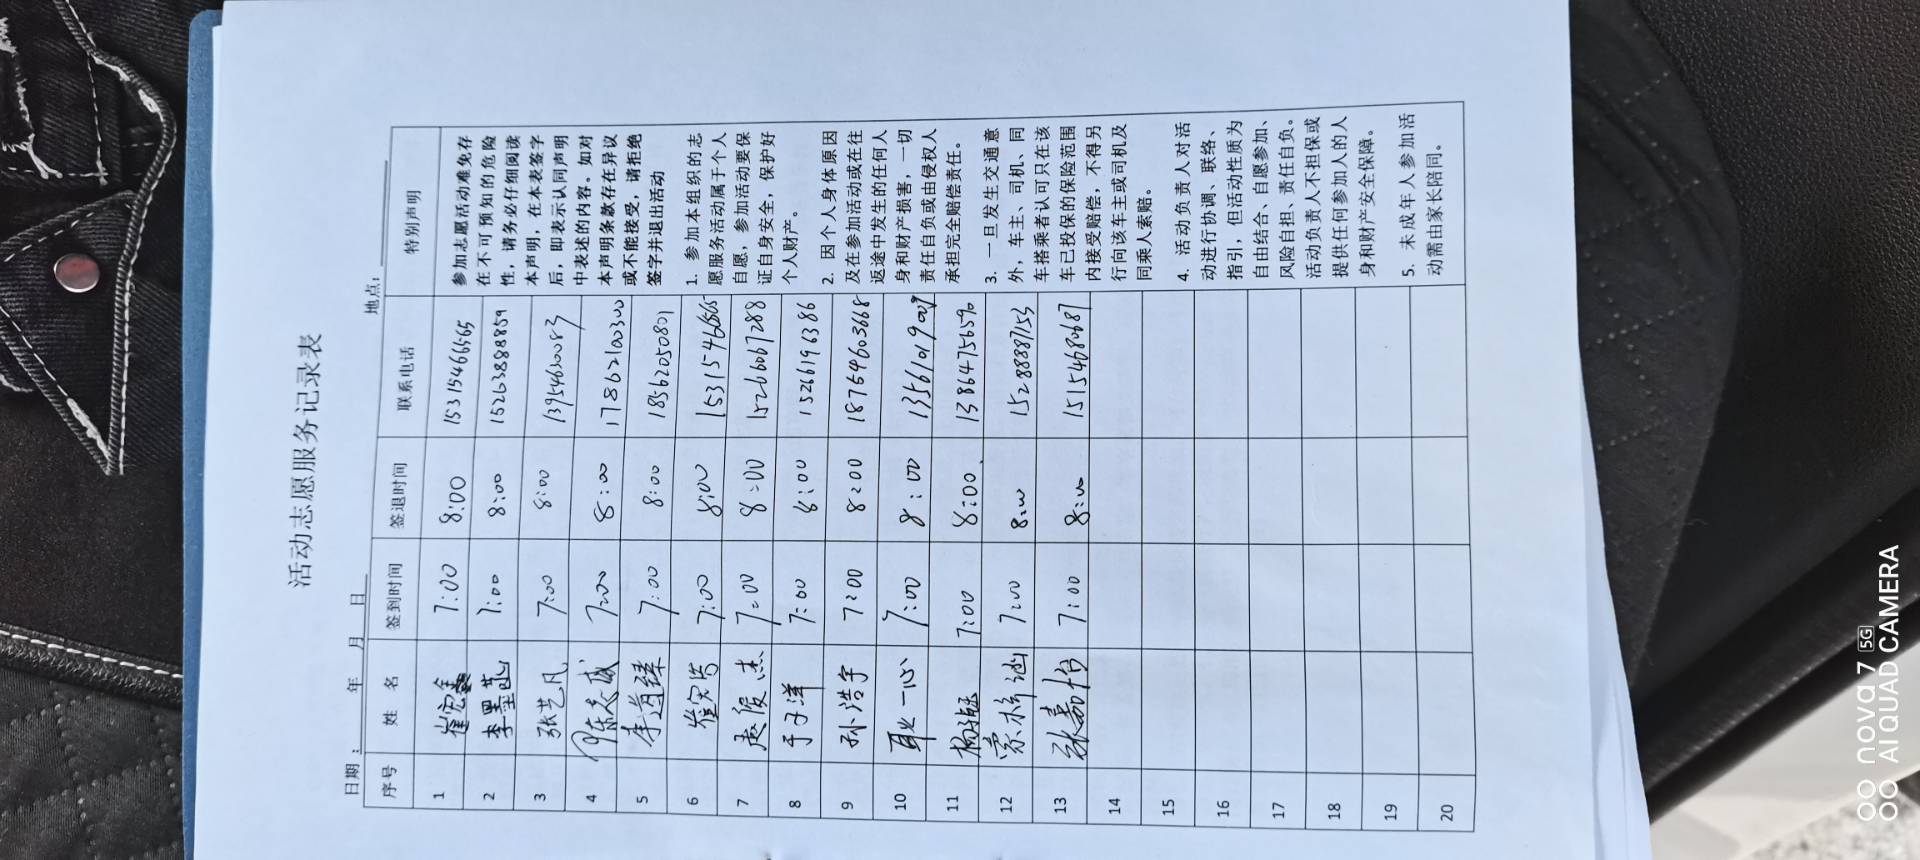 活动志愿服务记录表
日期： 年 月 日 地点：
序号 姓 名 签到时间 签退时间 联系电话 特别声明
1 7:00 8:00 15315466565
2 李墨菲 7:00 8:00 15263888859
3 张艺凡 7:00 8:00 13954630083
4 陈天成 7:00 8:00 17862100300
5 李道臻 7:00 8:00 18562050801
6 7:00 8:00
7 赵俊杰 7:00 8:00 15266067288
8 于子洋 7:00 8:00 15261196386
9 孙浩宇 7:00 8:00 18764603668
10 耿一心 7:00 8:00 13561019009
11 7:00 8:00 13864775659
12 7:00 8:00 15288887153
13 张嘉怡 7:00 8:00 15154680687
14
15
16
17
18
19
20
参加志愿活动难免存
在不可预知的危险
性，请务必仔细阅读
本声明，在本表签字
后，即表示认同声明
中表述的内容。如对
本声明条款存在异议
或不能接受，请拒绝
签字并退出活动
1. 参加本组织的志
愿服务活动属于个人
自愿，参加活动要保
证自身安全，保护好
个人财产。
2. 因个人身体原因
及在参加活动或在往
返途中发生的任何人
身和财产损害，一切
责任自负或由侵权人
承担完全赔偿责任。
3. 一旦发生交通意
外，车主、司机、同
车搭乘者认可只在该
车已投保的保险范围
内接受赔偿，不得另
行向该车主或司机及
同乘人索赔。
4. 活动负责人对活
动进行协调、联络、
指引，但活动性质为
自由结合、自愿参加、
风险自担、责任自负。
活动负责人不担保或
提供任何参加人的人
身和财产安全保障。
5. 未成年人参加活
动需由家长陪同。
nova 7 5G
AI QUAD CAMERA